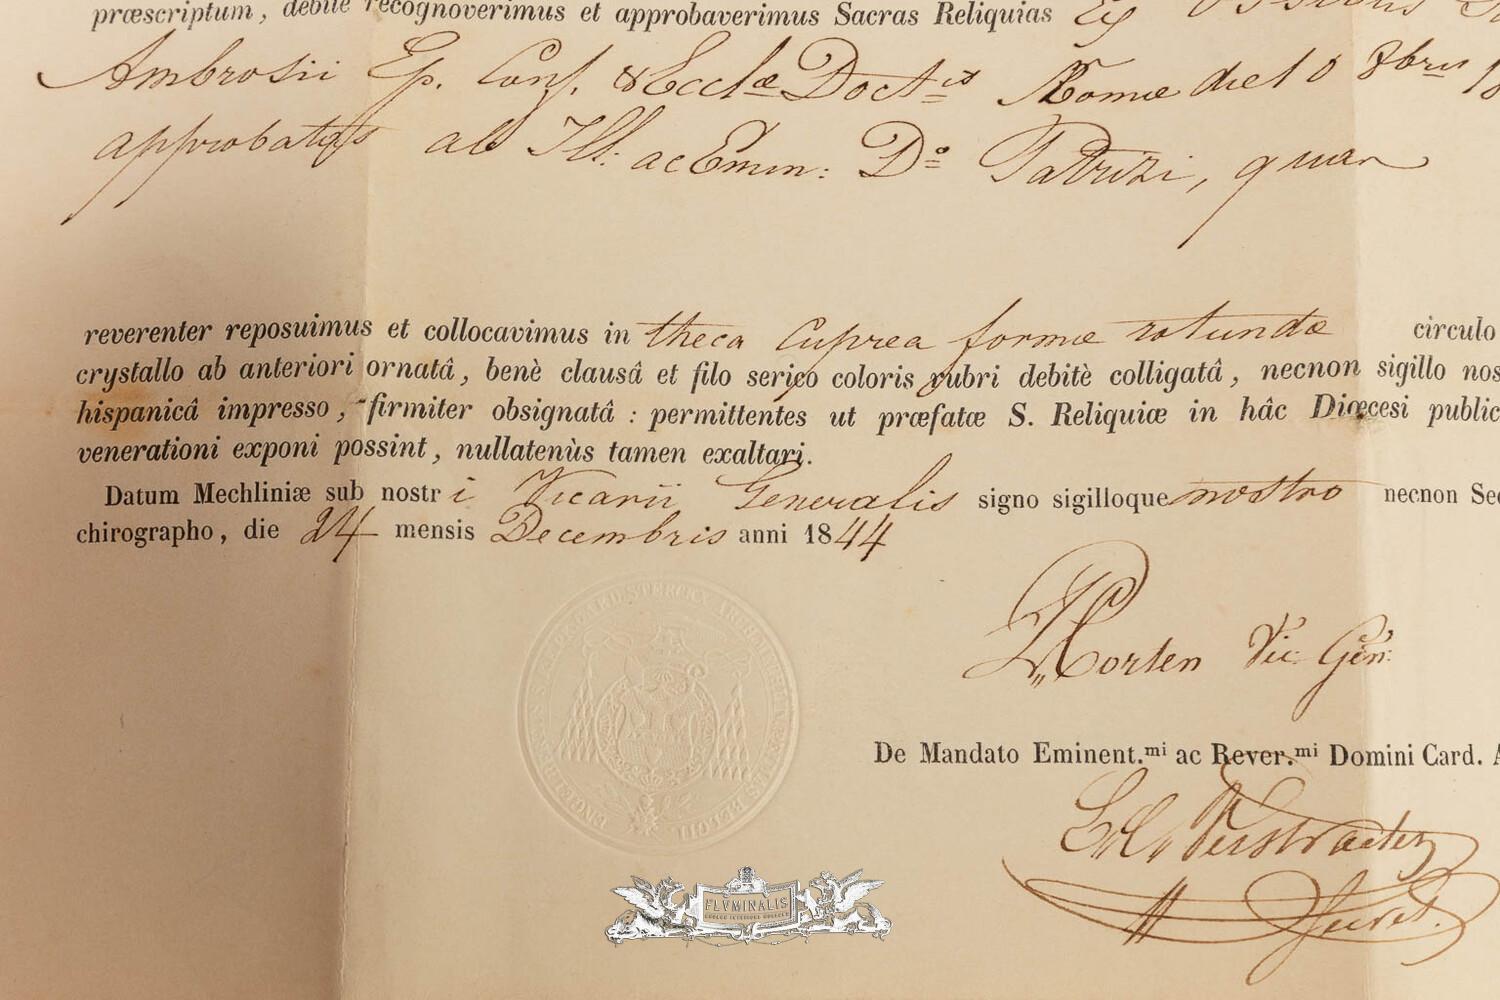 præscriptum, debite recognoverimus et approbaverimus Sacras Reliquias Ex Ossibus
Ambrosii Ep. Conf. & Eccláe Doct is Romæ die 10 8bris
approbatas ab Ill: ac Emin: Do Patrizi, quas
reverenter reposuimus et collocavimus in theca cuprea formæ rotundæ circulo
crystallo ab anteriori ornatâ, benè clausâ et filo serico coloris rubri debitè colligatâ, necnon sigillo nos
hispanicâ impresso, firmiter obsignatâ : permittentes ut præfatæ S. Reliquiæ in hâc Diœcesi public
venerationi exponi possint, nullatenùs tamen exaltari.
Datum Mechliniæ sub nostri Vicarii Generalis signo sigilloque nostro necnon Sec
chirographo, die 24 mensis Decembris anni 1844
ENGELBERTUS STERCKX BELGII
Corten Vic: Gen:
De Mandato Eminent.mi ac Rever.mi Domini Card. A
Verstraeten
Secret.
FLVMINALIS